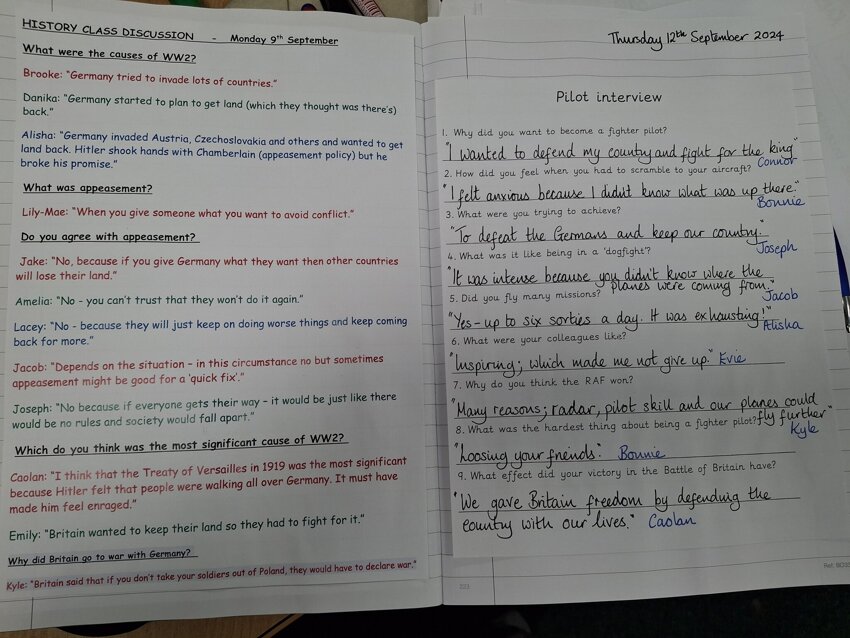 HISTORY CLASS DISCUSSION - Monday 9th September
What were the causes of WW2?
Brooke: "Germany tried to invade lots of countries."
Danika: "Germany started to plan to get land (which they thought was there's)
back."
Alisha: "Germany invaded Austria, Czechoslovakia and others and wanted to get
land back. Hitler shook hands with Chamberlain (appeasement policy) but he
broke his promise."
What was appeasement?
Lily-Mae: "When you give someone what you want to avoid conflict."
Do you agree with appeasement?
Jake: "No, because if you give Germany what they want then other countries
will lose their land."
Amelia: "No - you can't trust that they won't do it again."
Lacey: "No - because they will just keep on doing worse things and keep coming
back for more."
Jacob: "Depends on the situation – in this circumstance no but sometimes
appeasement might be good for a 'quick fix'."
Joseph: "No because if everyone gets their way – it would be just like there
would be no rules and society would fall apart."
Which do you think was the most significant cause of WW2?
Caolan: "I think that the Treaty of Versailles in 1919 was the most significant
because Hitler felt that people were walking all over Germany. It must have
made him feel enraged."
Emily: "Britain wanted to keep their land so they had to fight for it."
Why did Britain go to war with Germany?
Kyle: "Britain said that if you don't take your soldiers out of Poland, they would have to declare war."
Thursday 12th September 2024
Pilot interview
1. Why did you want to become a fighter pilot?
"I wanted to defend my country and fight for the king"
Connor
2. How did you feel when you had to scramble to your aircraft?
"I felt anxious because I didn't know what was up there."
Bonnie
3. What were you trying to achieve?
"To defeat the Germans and keep our country."
Joseph
4. What was it like being in a 'dogfight'?
"It was intense because you didn't know where the
planes were coming from."
Jacob
5. Did you fly many missions?
"Yes - up to six sorties a day. It was exhausting!"
Alisha
6. What were your colleagues like?
"Inspiring; which made me not give up." Evie
7. Why do you think the RAF won?
"Many reasons; radar, pilot skill and our planes could
fly further"
Kyle
8. What was the hardest thing about being a fighter pilot?
"Loosing your friends." Bonnie
9. What effect did your victory in the Battle of Britain have?
"We gave Britain freedom by defending the
country with our lives." Caolan